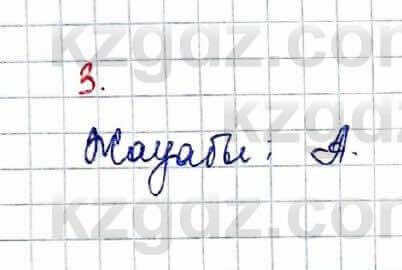 kzgdz.com
3.
kzgdz.com
Жауабы: А.
kzgdz.com